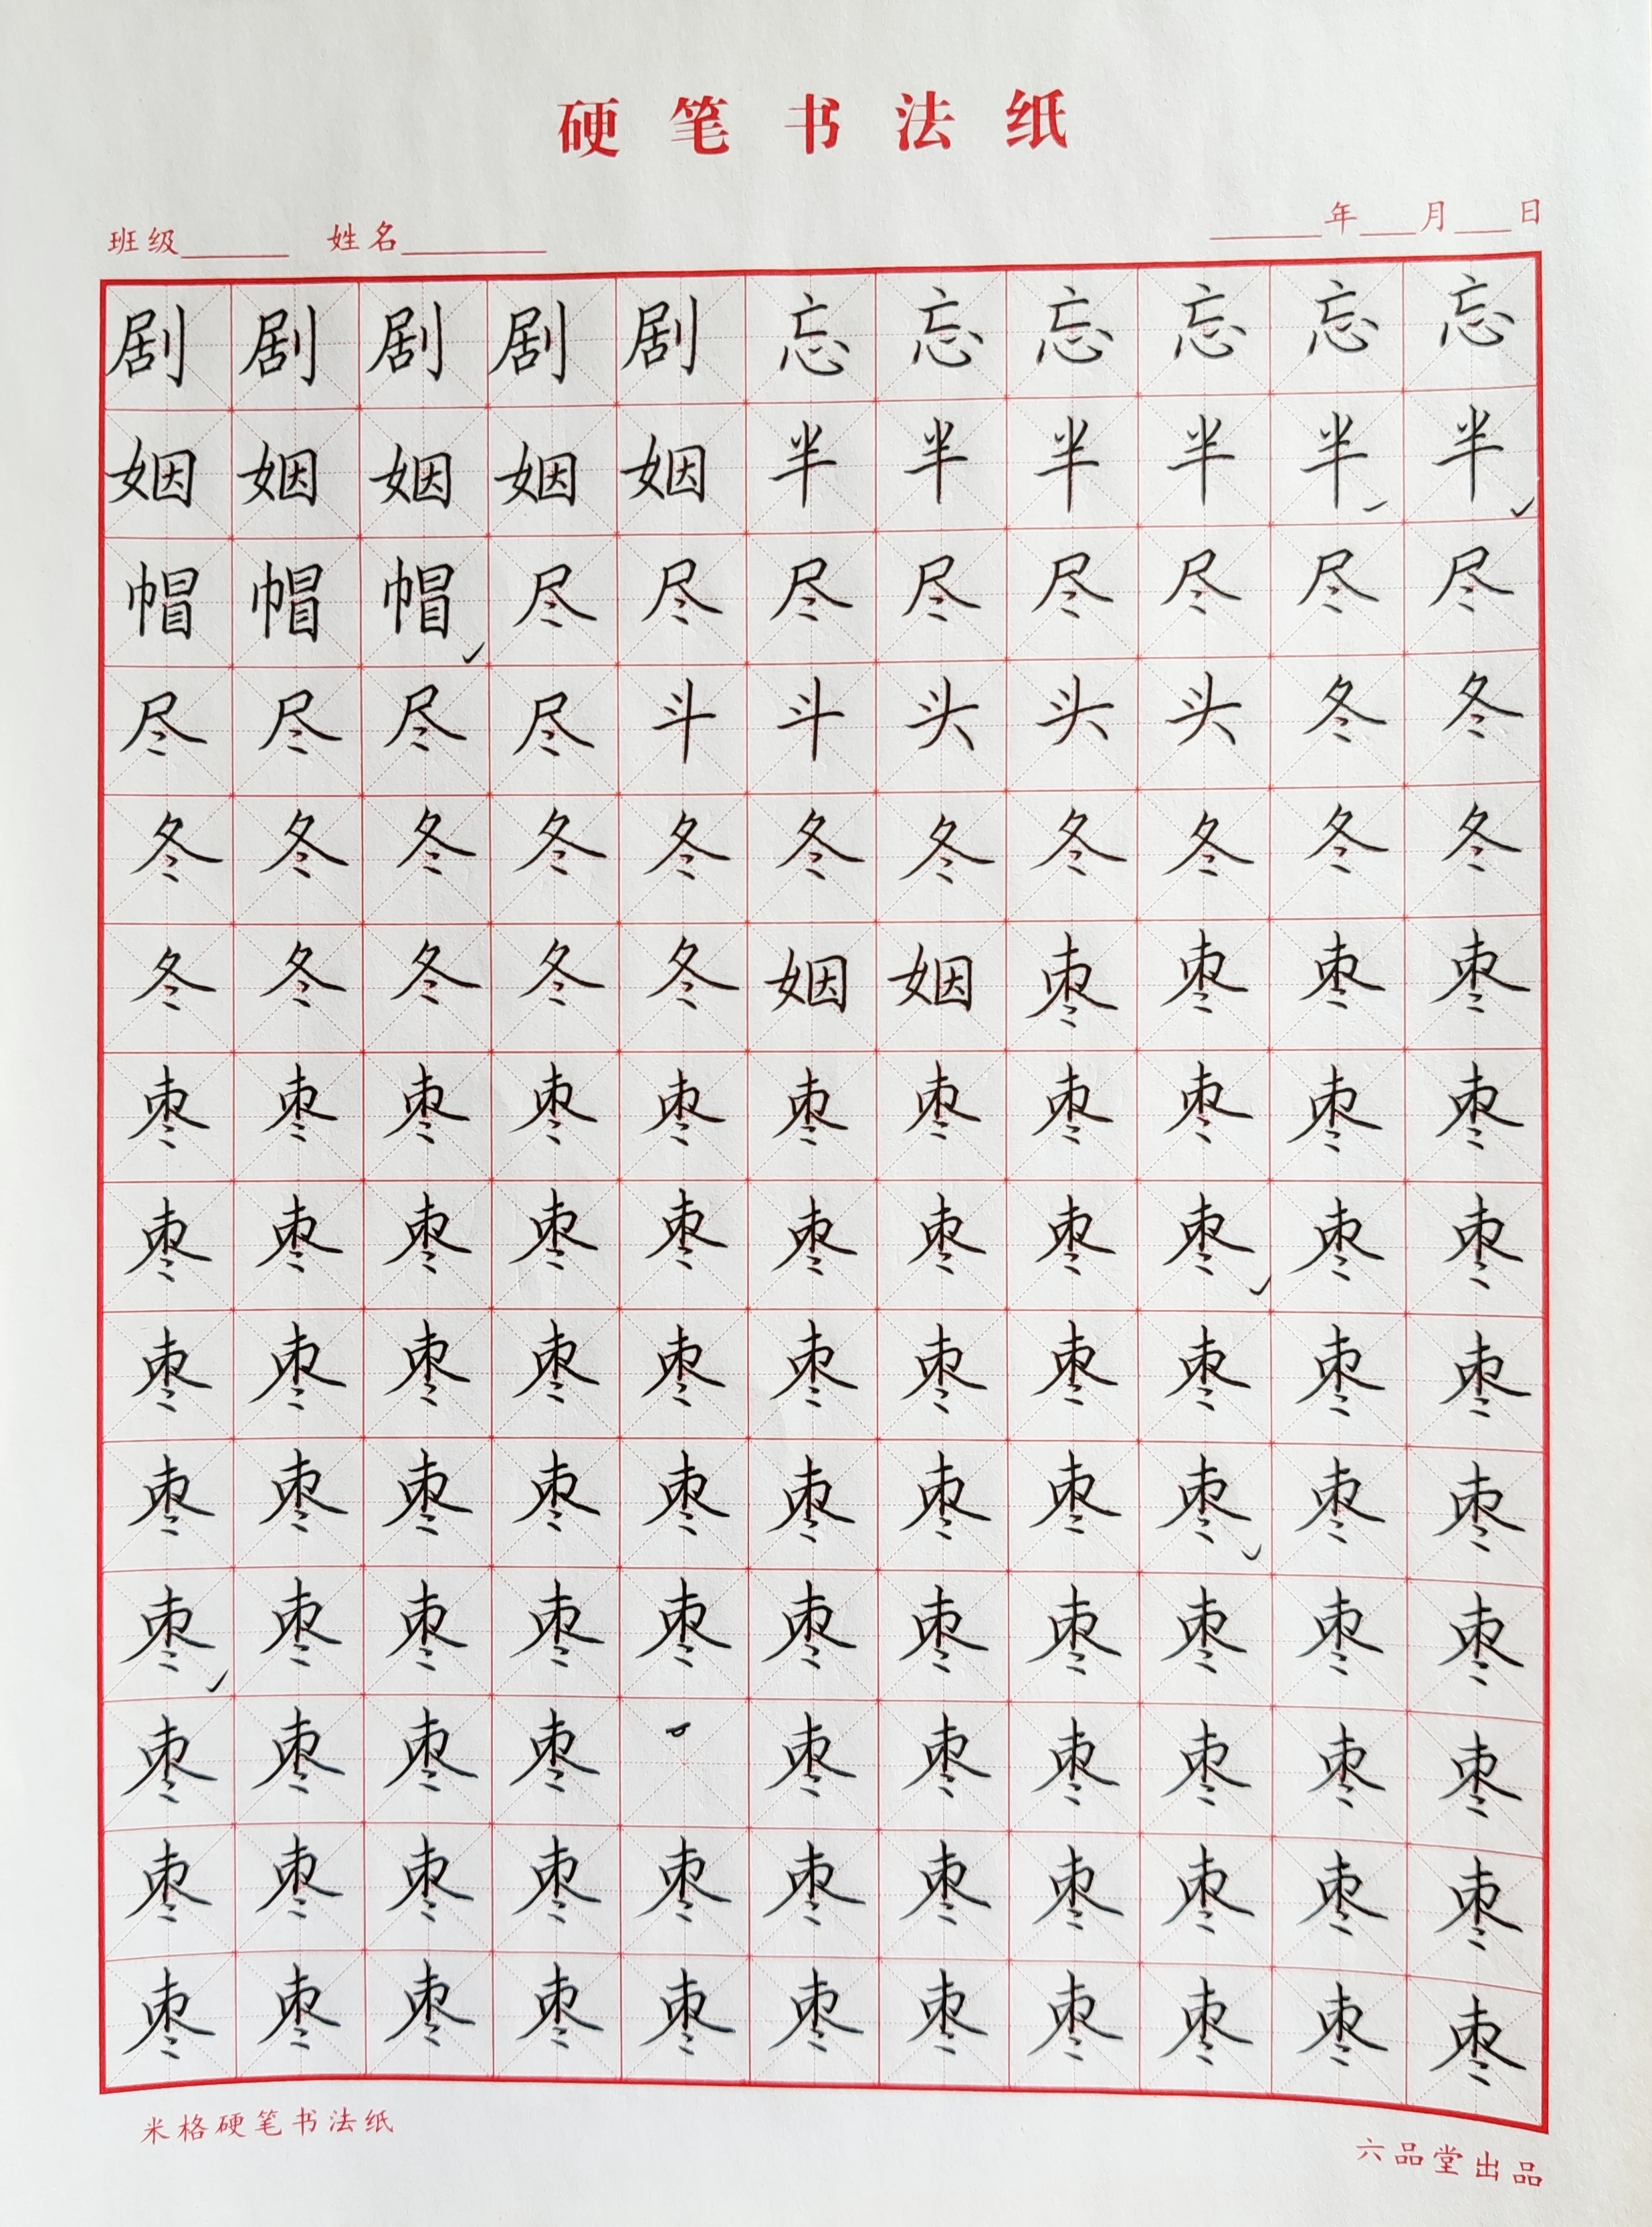 硬笔书法纸
班级 姓名 年 月 日
剧剧剧剧剧忘忘忘忘忘忘
姻姻姻姻姻半半半半半半
帽帽帽尽尽尽尽尽尽尽尽
尽尽尽尽斗斗头头头冬冬
冬冬冬冬冬冬冬冬冬冬冬
冬冬冬冬冬姻姻枣枣枣枣
枣枣枣枣枣枣枣枣枣枣枣
枣枣枣枣枣枣枣枣枣枣枣
枣枣枣枣枣枣枣枣枣枣枣
枣枣枣枣枣枣枣枣枣枣枣
枣枣枣枣枣枣枣枣枣枣枣
枣枣枣枣枣枣枣枣枣枣
枣枣枣枣枣枣枣枣枣枣枣
枣枣枣枣枣枣枣枣枣枣枣
米格硬笔书法纸
六品堂出品